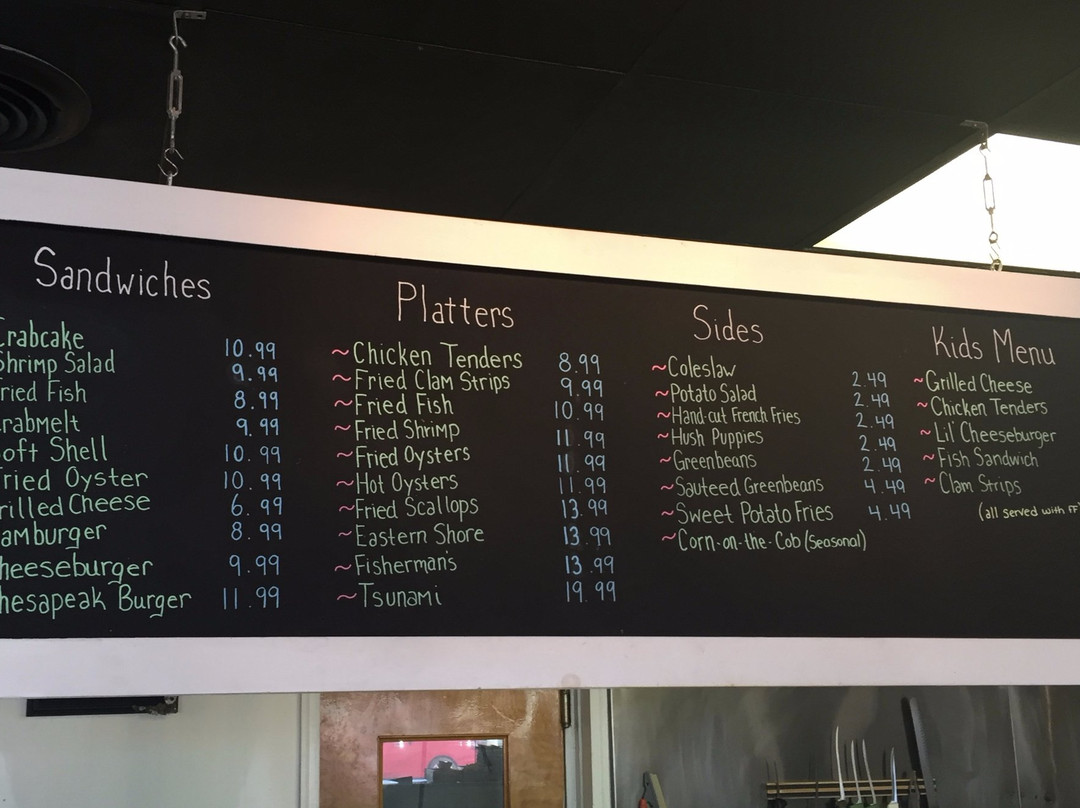 Sandwiches
Crabcake 10.99
Shrimp Salad 9.99
ried Fish 8.99
rabmelt 9.99
oft Shell 10.99
ried Oyster 10.99
rilled Cheese 6.99
amburger 8.99
heeseburger 9.99
hesapeak Burger 11.99
Platters
~Chicken Tenders 8.99
~Fried Clam Strips 9.99
~Fried Fish 10.99
~Fried Shrimp 11.99
~Fried Oysters 11.99
~Hot Oysters 11.99
~Fried Scallops 13.99
~Eastern Shore 13.99
~Fisherman's 13.99
~Tsunami 19.99
Sides
~Coleslaw 2.49
~Potato Salad 2.49
~Hand-cut French Fries 2.49
~Hush Puppies 2.49
~Greenbeans 2.49
~Sauteed Greenbeans 4.49
~Sweet Potato Fries 4.49
~Corn-on-the-Cob (Seasonal)
Kids Menu
~Grilled Cheese
~Chicken Tenders
~Lil' Cheeseburger
~Fish Sandwich
~Clam Strips
(all served with FF